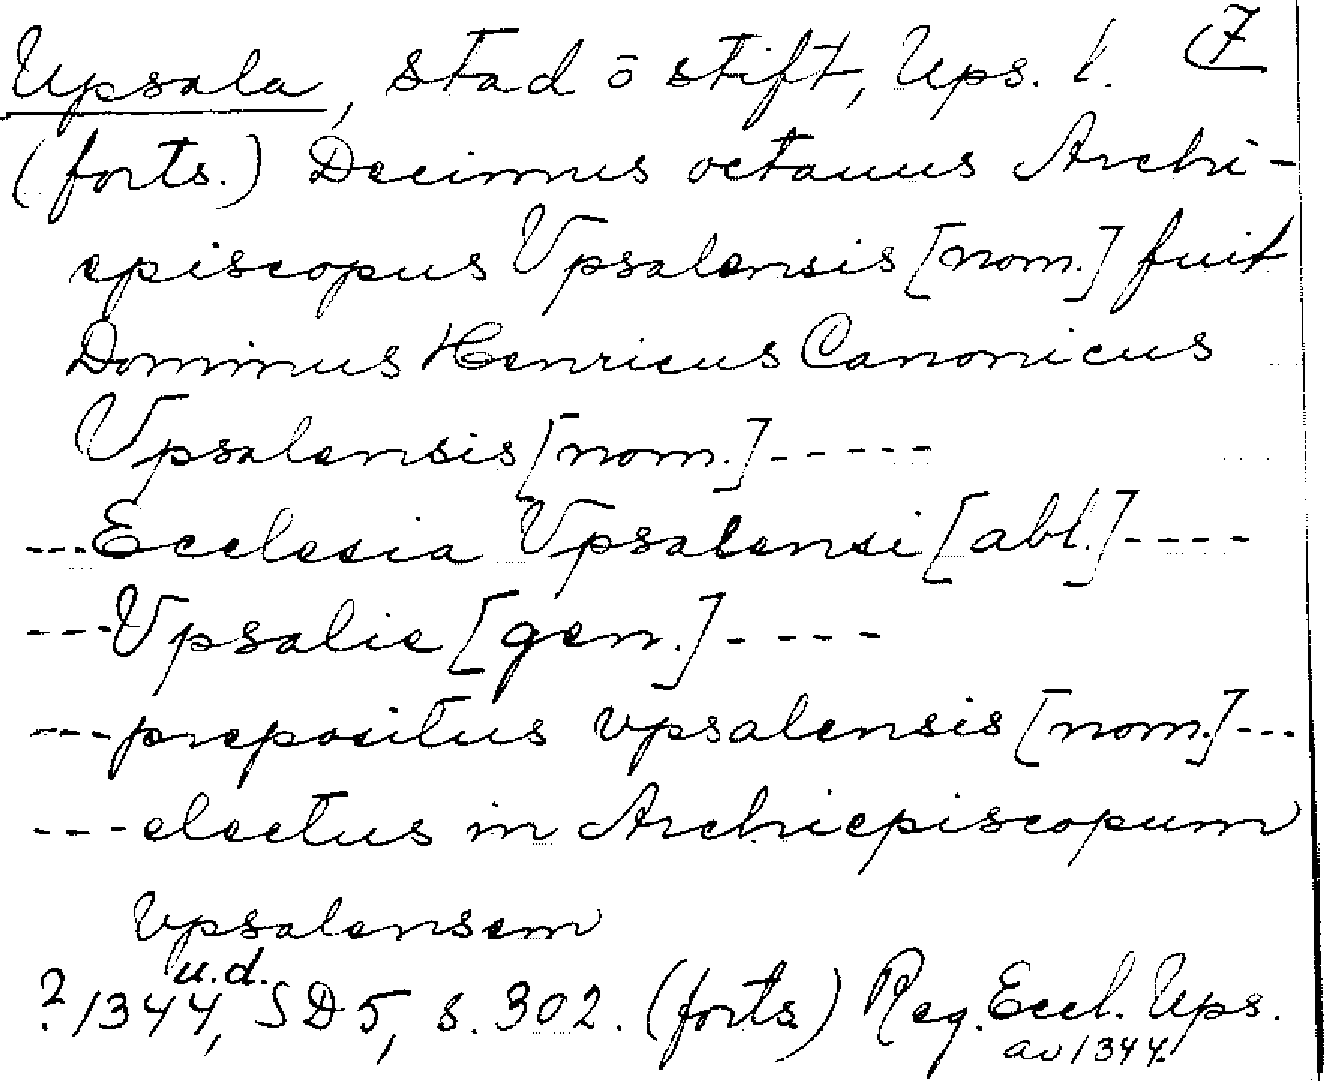 Upsala, stad o stift, Ups. l. 7
(forts.) Decimus octauus Archi-
episcopus Vpsalensis [nom.] fuit
Dominus Henricus Canonicus
Vpsalensis [nom.] -----
--- Ecclesia Vpsalensi [abl.] ----
--- Vpsalie [gen.] ----
--- prepositus vpsalensis [nom.] ---
--- electus in Archiepiscopum
vpsalensem
u.d.
? 1344, SD 5, s. 302. (forts.) Reg. Eccl. Ups.
av 1344.